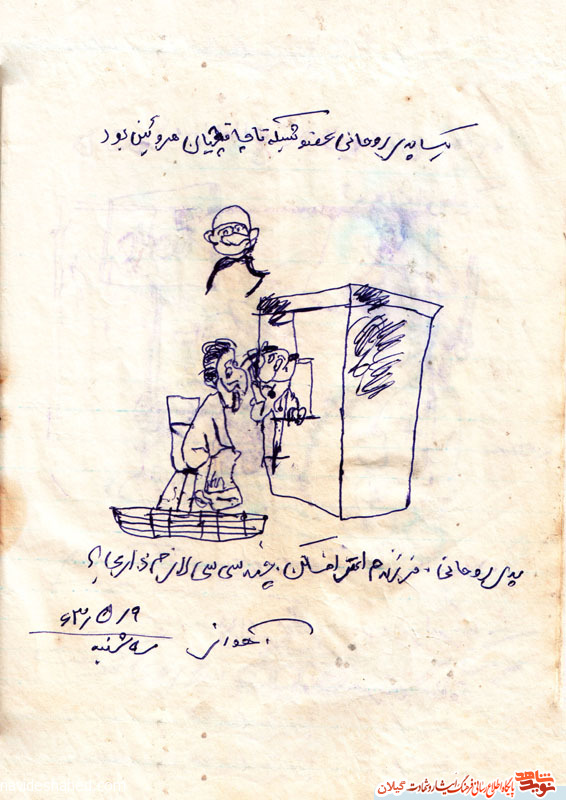 یک پدر روحانی عضو شبکه قاچاقچیان هروئین بود
پدر روحانی . فرزندم اعتراف کن . چند سی سی لازم داری ؟
اهواز
۶۳/۵/۹
سه شنبه
نوید شاهد
پایگاه اطلاع رسانی فرهنگ ایثار و شهادت گیلان
navideshahed.com